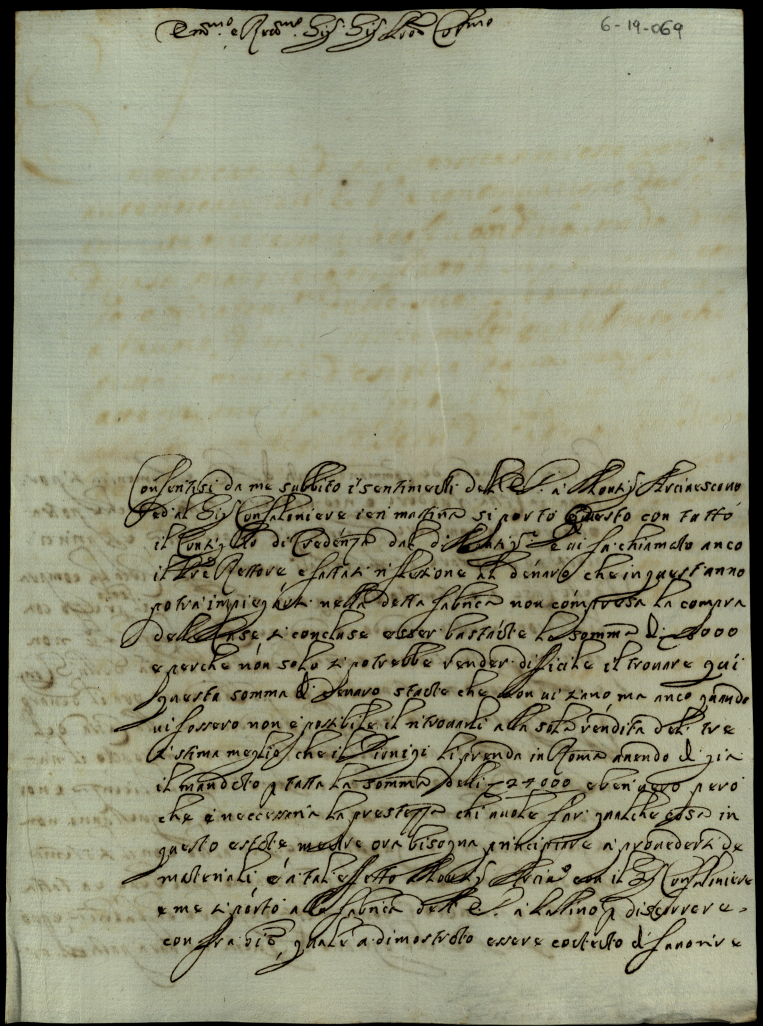 Em.mo e Rev.mo Sig.r Sig.r Pron Col.mo
6-19-069
Consentisi da me subbito i sentimenti dell' E. V. a Monsig.r Arcivescovo
ed al Sig.r Confaloniere ieri mattina si portò questo con tutto
il Consiglio di Credenza dal di Monsig.re e vi fu chiamato anco
il Pre Rettore e fattasi riflessione al denaro che in quest'anno
potrà impiegarsi nella detta fabrica non compressa la compra
delle Case si concluse esser bastante la somma di 8000
e perche non solo si potrebbe render difficile il trovare qui
questa somma di denaro stante che non vi sanò ma anco quando
vi fossero non è possibile il ritrovarli alla sola rendita delli tre
si stima meglio che il Dionigi li prenda in Roma avendo di già
il mandato p tutta la somma delli 24000 e ben vero però
che è neccessaria la prestezza chi vuole fari qualche cosa in
questo estate mentre ora bisogna anticipare a provedersi de
materiali e a tal effetto Monsig.r Arciv.o con il Sig.r Confaloniere
e me si portò alla fabrica dell' E. V. a Latino p discorrere
con fra Bio quale a dimostrato essere contento di favorire